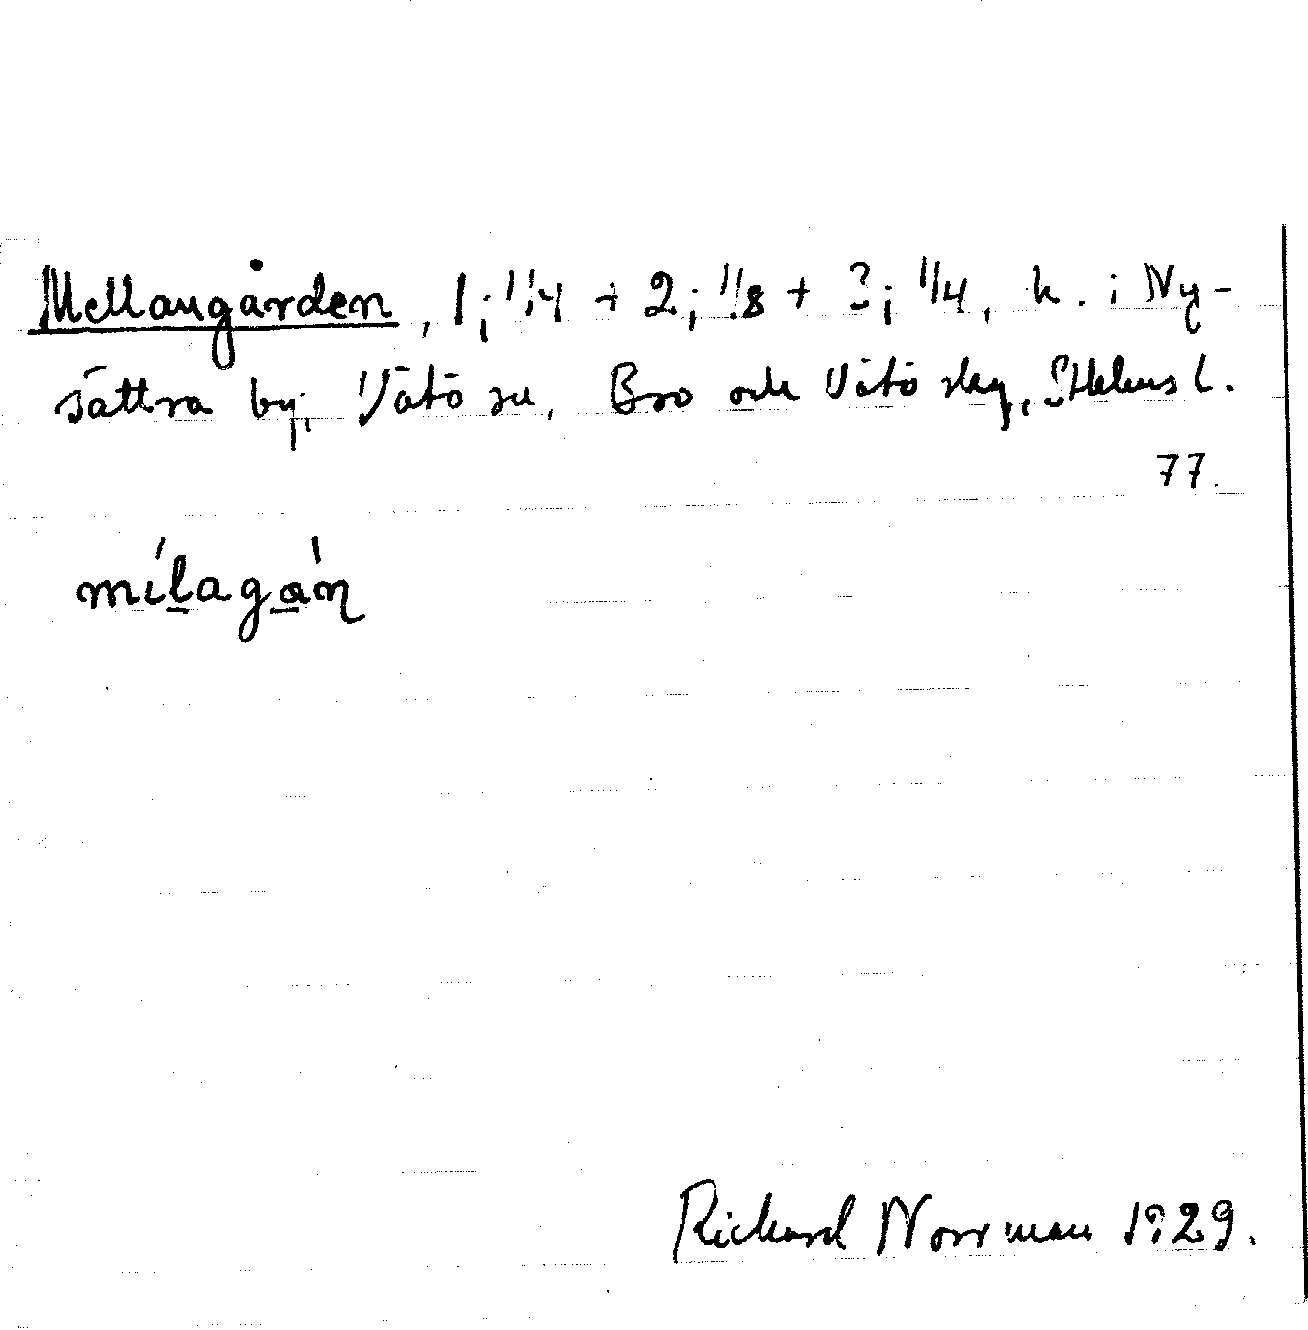 Mellangården, 1; 1/4 + 2; 1/8 + 3; 1/4, h. i Ny-
sättra by, Vätö sn, Bro och Vätö skg, Sthlms l.
77.
mílagáṇ
Richard Norrman 1929.